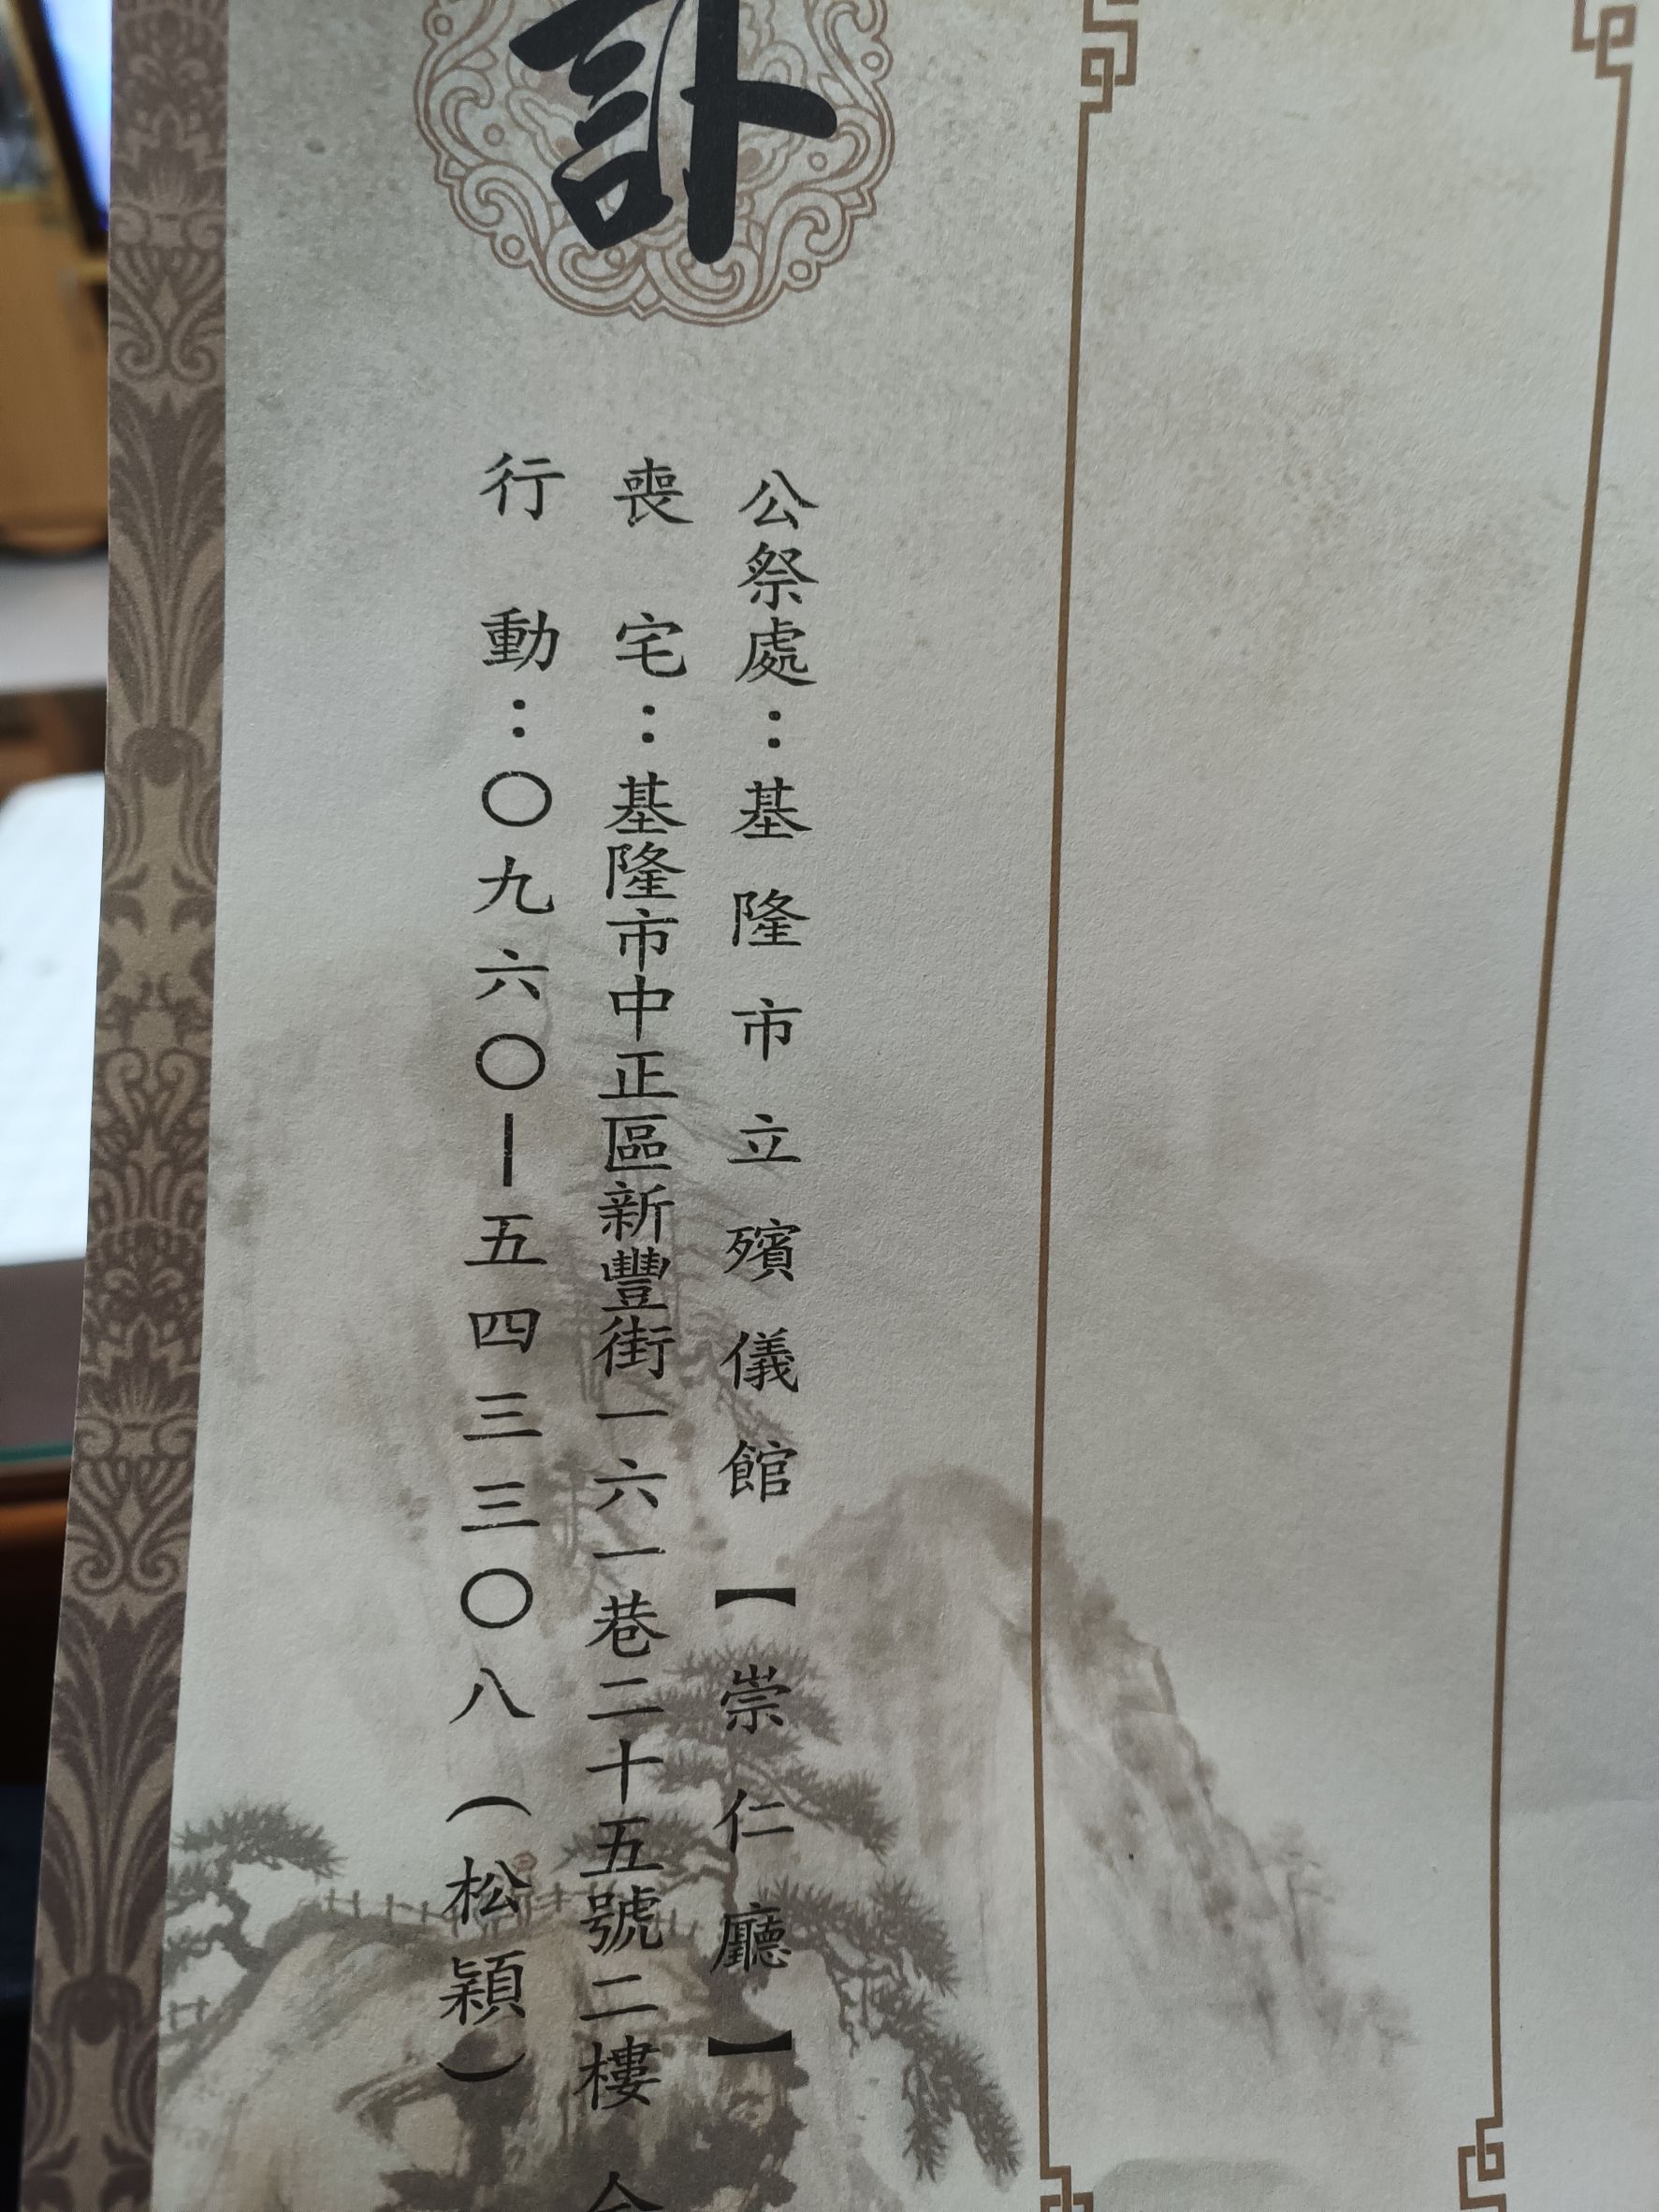 訃
公祭處：基隆市立殯儀館【崇仁廳】
喪宅：基隆市中正區新豐街一六一巷二十五號二樓
行動：〇九六〇—五四三三〇八（松穎）